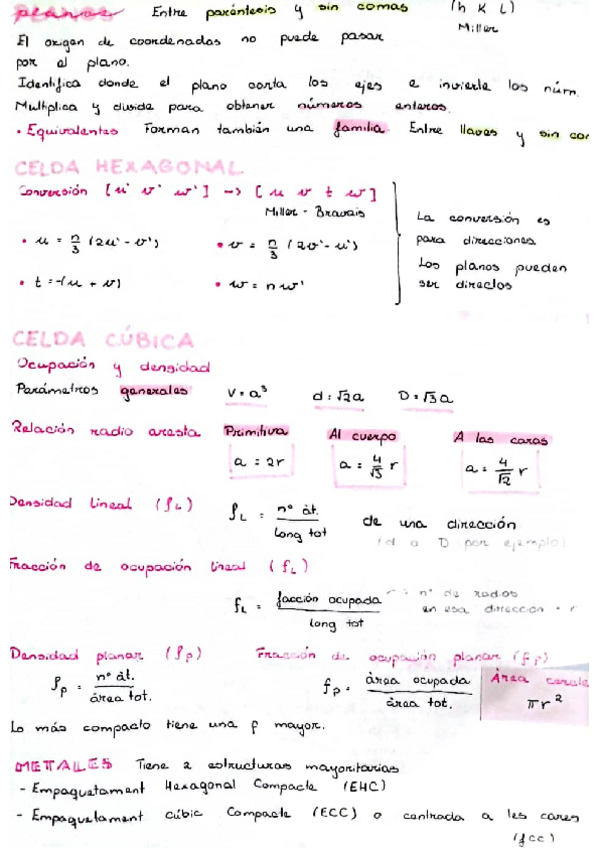 planos Entre paréntesis y sin comas (h k l)
Miller
El origen de coordenadas no puede pasar
por el plano.
Identifica donde el plano corta los ejes e invierte los núm.
Multiplica y divide para obtener números enteros.
• Equivalentes Forman también una familia. Entre llaves y sin com
CELDA HEXAGONAL
Conversión [u' v' w'] -> [u v t w]
Miller - Bravais
• u = n/3 (2u' - v') • v = n/3 (2v' - u')
• t = -(u + v) • w = n w'
La conversión es
para direcciones
Los planos pueden
ser directos
CELDA CÚBICA
Ocupación y densidad
Parámetros generales V = a³ d = √2a D = √3a
Relación radio arista Primitiva Al cuerpo A las caras
a = 2r a = 4/√3 r a = 4/√2 r
Densidad lineal (ρL) ρL = nº át. / long tot de una dirección
(d o D por ejemplo)
Fracción de ocupación lineal (fL)
fL = facción ocupada / long tot
r = nº de radios
en esa dirección · r
Densidad planar (ρp) Fracción de ocupación planar (fp)
ρp = nº át. / área tot. fp = área ocupada / área tot. Área
πr²
Lo más compacto tiene una ρ mayor.
METALES Tiene 2 estructuras mayoritarias
- Empaquetament Hexagonal Compacte (EHC)
- Empaquetament cúbic Compacte (ECC) o centrada a les cares
(fcc)